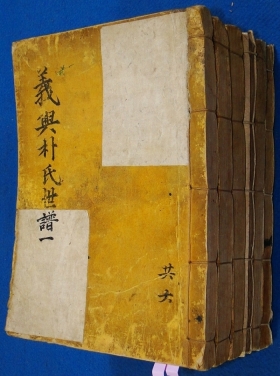 義興朴氏世譜一
共六